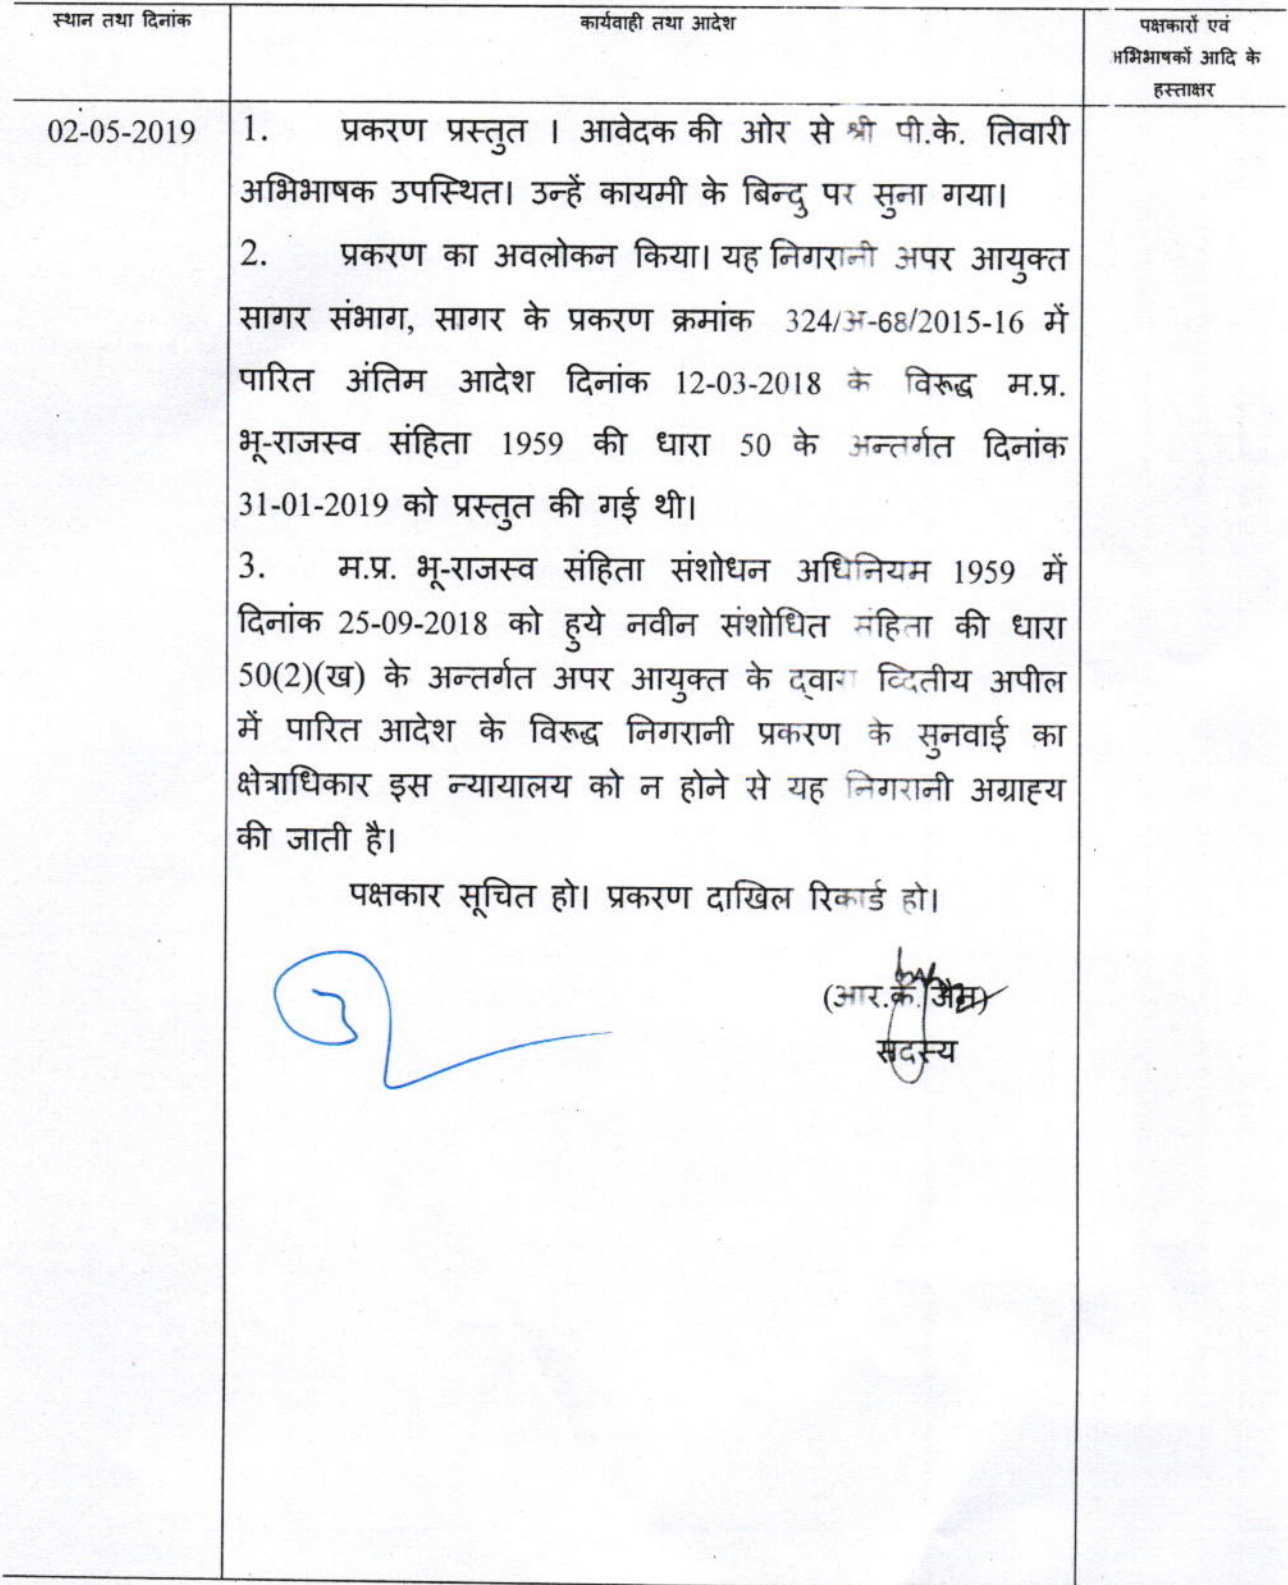 स्थान तथा दिनांक
कार्यवाही तथा आदेश
पक्षकारों एवं
अभिभाषकों आदि के
हस्ताक्षर
02-05-2019
1. प्रकरण प्रस्तुत । आवेदक की ओर से श्री पी.के. तिवारी
अभिभाषक उपस्थित। उन्हें कायमी के बिन्दु पर सुना गया।
2. प्रकरण का अवलोकन किया। यह निगरानी अपर आयुक्त
सागर संभाग, सागर के प्रकरण क्रमांक 324/अ-68/2015-16 में
पारित अंतिम आदेश दिनांक 12-03-2018 के विरूद्ध म.प्र.
भू-राजस्व संहिता 1959 की धारा 50 के अन्तर्गत दिनांक
31-01-2019 को प्रस्तुत की गई थी।
3. म.प्र. भू-राजस्व संहिता संशोधन अधिनियम 1959 में
दिनांक 25-09-2018 को हुये नवीन संशोधित संहिता की धारा
50(2)(ख) के अन्तर्गत अपर आयुक्त के द्वारा व्दितीय अपील
में पारित आदेश के विरूद्ध निगरानी प्रकरण के सुनवाई का
क्षेत्राधिकार इस न्यायालय को न होने से यह निगरानी अग्राह्य
की जाती है।
पक्षकार सूचित हो। प्रकरण दाखिल रिकार्ड हो।
(आर.के. जैन)
सदस्य